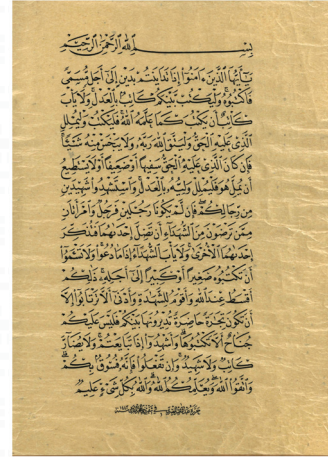 بِسْمِ اللهِ الرَّحْمٰنِ الرَّحِيمِ
يَٰٓأَيُّهَا الَّذِينَ ءَامَنُوٓا إِذَا تَدَايَنتُم بِدَيْنٍ إِلَىٰٓ أَجَلٍ مُّسَمًّى
فَاكْتُبُوهُ وَلْيَكْتُب بَّيْنَكُمْ كَاتِبٌ بِالْعَدْلِ وَلَا يَأْبَ
كَاتِبٌ أَن يَكْتُبَ كَمَا عَلَّمَهُ اللهُ فَلْيَكْتُبْ وَلْيُمْلِلِ
الَّذِي عَلَيْهِ الْحَقُّ وَلْيَتَّقِ اللهَ رَبَّهُ وَلَا يَبْخَسْ مِنْهُ شَيْئًا
فَإِن كَانَ الَّذِي عَلَيْهِ الْحَقُّ سَفِيهًا أَوْ ضَعِيفًا أَوْ لَا يَسْتَطِيعُ
أَن يُمِلَّ هُوَ فَلْيُمْلِلْ وَلِيُّهُ بِالْعَدْلِ وَاسْتَشْهِدُوا شَهِيدَيْنِ
مِن رِّجَالِكُمْ فَإِن لَّمْ يَكُونَا رَجُلَيْنِ فَرَجُلٌ وَامْرَأَتَانِ
مِمَّن تَرْضَوْنَ مِنَ الشُّهَدَآءِ أَن تَضِلَّ إِحْدَىٰهُمَا فَتُذَكِّرَ
إِحْدَىٰهُمَا الْأُخْرَىٰ وَلَا يَأْبَ الشُّهَدَآءُ إِذَا مَا دُعُوا وَلَا تَسْـَٔمُوٓا
أَن تَكْتُبُوهُ صَغِيرًا أَوْ كَبِيرًا إِلَىٰٓ أَجَلِهِ ذَٰلِكُمْ
أَقْسَطُ عِندَ اللهِ وَأَقْوَمُ لِلشَّهَٰدَةِ وَأَدْنَىٰٓ أَلَّا تَرْتَابُوٓا إِلَّآ
أَن تَكُونَ تِجَٰرَةً حَاضِرَةً تُدِيرُونَهَا بَيْنَكُمْ فَلَيْسَ عَلَيْكُمْ
جُنَاحٌ أَلَّا تَكْتُبُوهَا وَأَشْهِدُوٓا إِذَا تَبَايَعْتُمْ وَلَا يُضَآرَّ
كَاتِبٌ وَلَا شَهِيدٌ وَإِن تَفْعَلُوا فَإِنَّهُ فُسُوقٌ بِكُمْ
وَاتَّقُوا اللهَ وَيُعَلِّمُكُمُ اللهُ وَاللهُ بِكُلِّ شَيْءٍ عَلِيمٌ